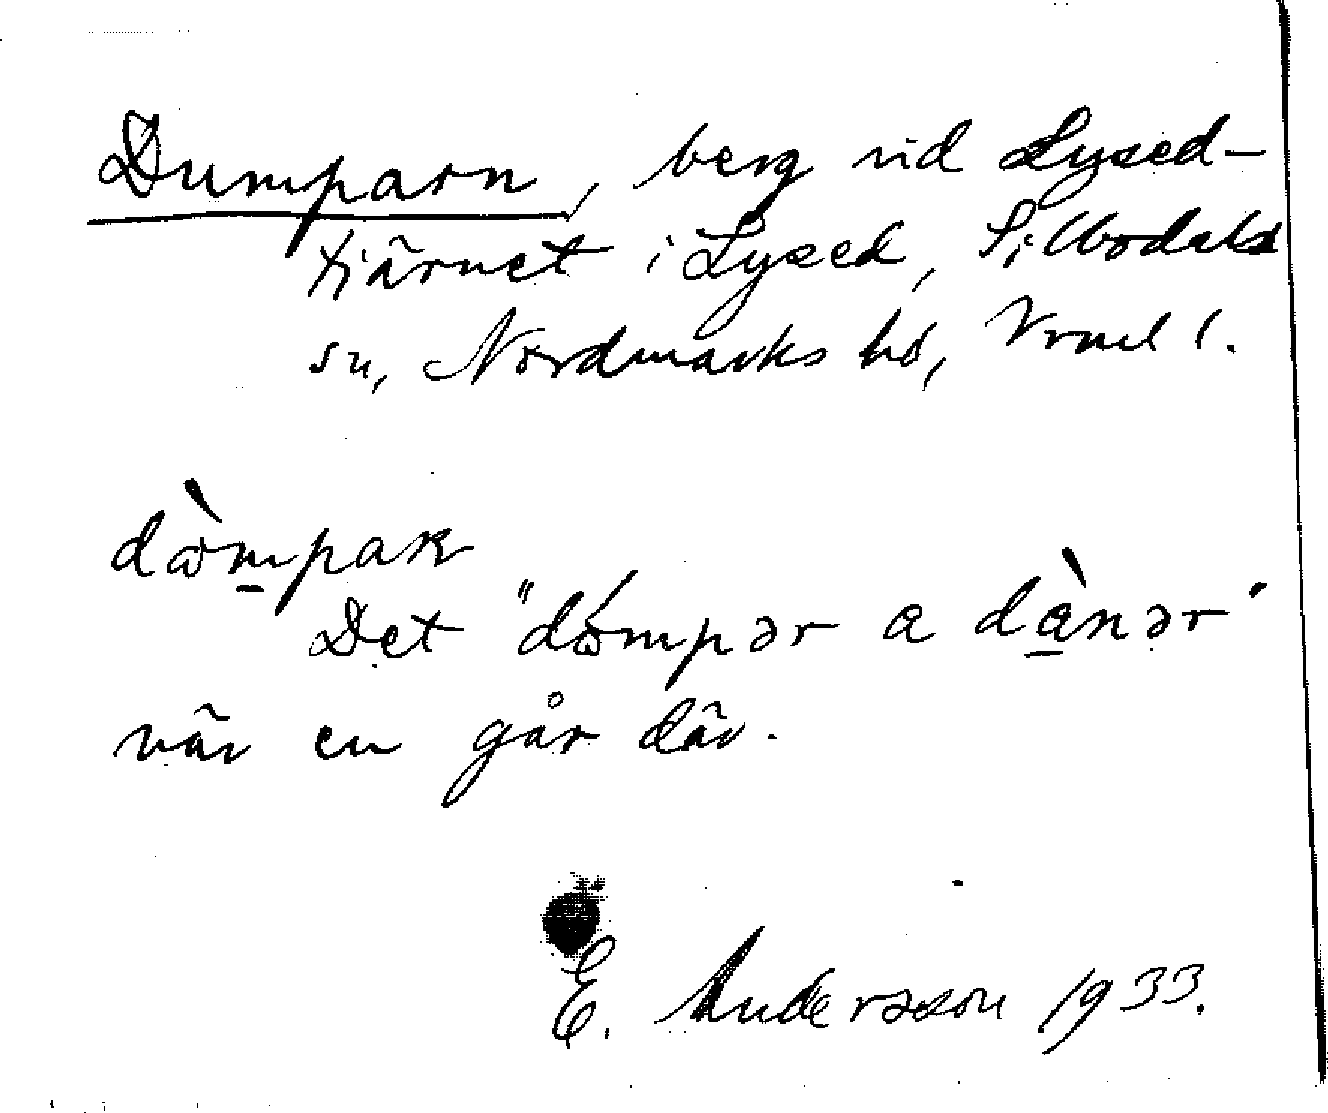 Dumparn, berg vid Lysed-
tjärnet i Lysed, Sillbodals
sn, Nordmarks hd, Vrml l.
dòmpaɴ
Det "dómpər a dànər"
när en går där.
E. Andersson 1933.